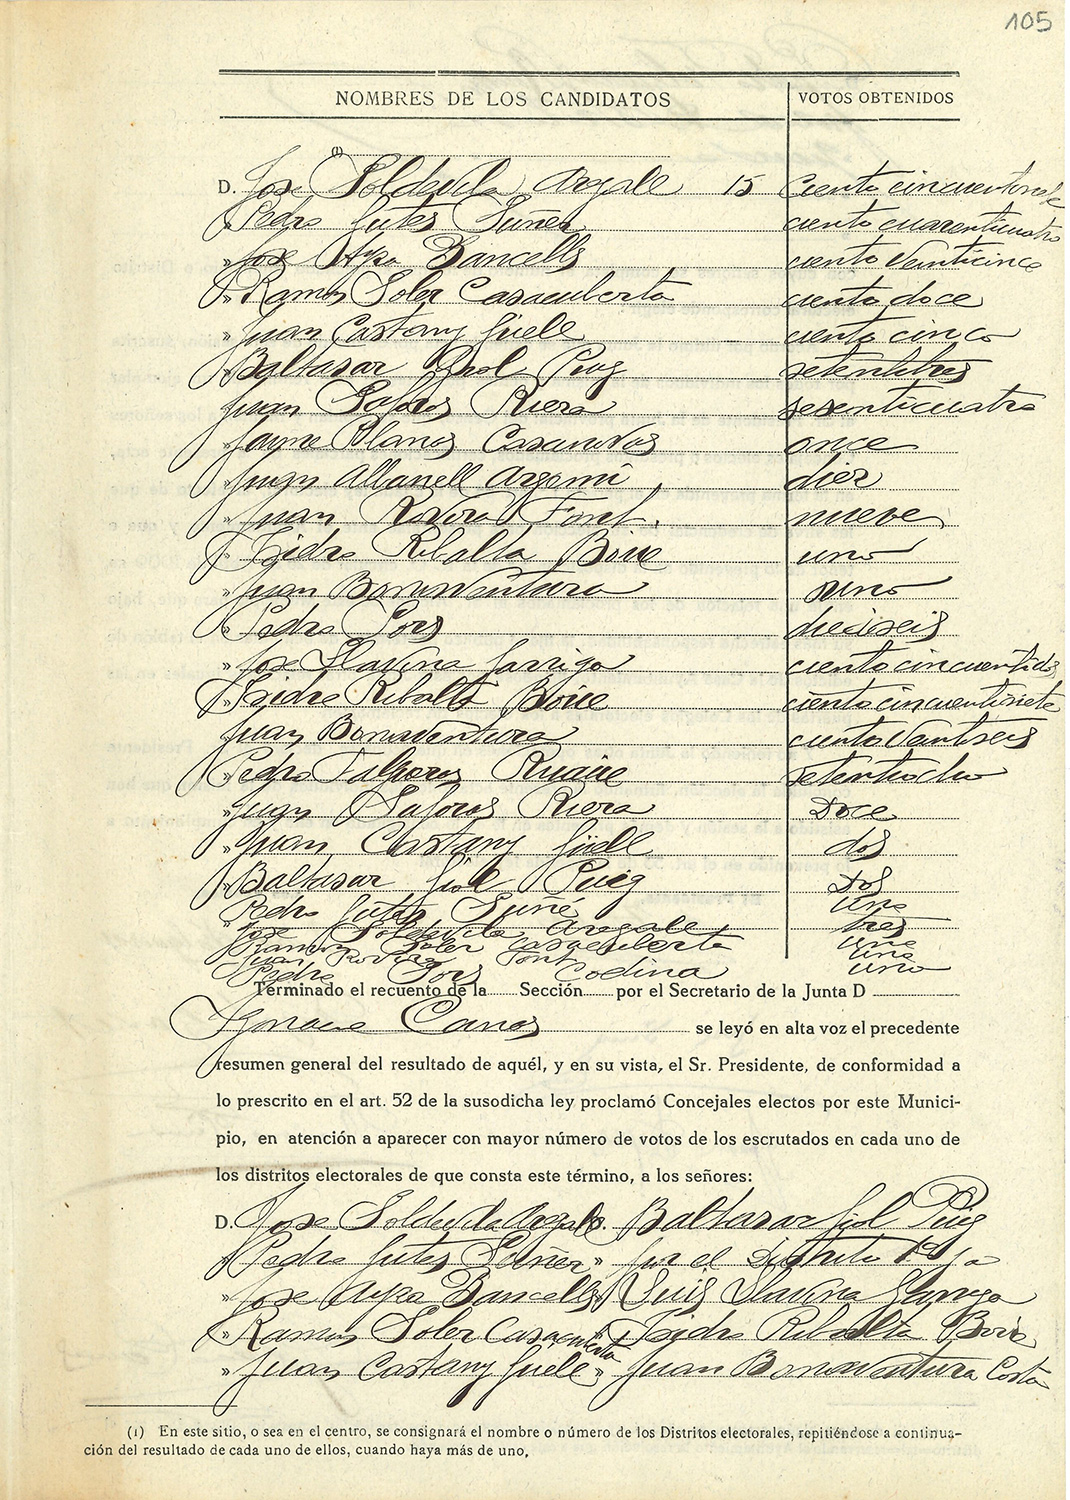 105
NOMBRES DE LOS CANDIDATOS VOTOS OBTENIDOS
(1)
D. Jose Soldevila Argale 15 ciento cincuentinueve
» Pedro Jutes Suñer ciento cuarenticuatro
» Jose Aypa Dancells ciento veinticinco
» Ramon Soler Casacuberta ciento doce
» Juan Castany Güell ciento cinco
» Baltasar Giol Puig setentitres
» Juan Safores Riera sesenticuatro
» Jayme Planas Casanovas once
» Juan Albanell Argemí diez
» Juan Rovira Font. nueve
» Isidro Ribalta Boue uno
» Juan Bonaventura uno
» Pedro Pors dieciseis
» Jose Llavina Garriga ciento cincuentidos
» Isidro Ribalta Boue ciento cincuentisiete
» Juan Bonaventura ciento ventiseis
» Pedro Falgoras setentiocho
» Juan Safores Riera Doce
» Juan Castany Güell dos
» Baltasar Giol Puig Dos
Pedro Jutes Suñé uno
Jose Soldevila Aregale tres
Ramon Soler Casacuberta uno
Juan Rovira Font uno
Pedro Pors Codina uno
Terminado el recuento de la Sección por el Secretario de la Junta D
Ignacio Canas se leyó en alta voz el precedente
resumen general del resultado de aquél, y en su vista, el Sr. Presidente, de conformidad a
lo prescrito en el art. 52 de la susodicha ley proclamó Concejales electos por este Munici-
pio, en atención a aparecer con mayor número de votos de los escrutados en cada uno de
los distritos electorales de que consta este término, a los señores:
D. Jose Soldevila Argale D. Baltasar Giol Puig
» Pedro Jutes Suñer » por el Distrito 1º y a
» Jose Aypa Dancells » Luis Llavina Garriga
» Ramon Soler Casacuberta » Isidro Ribalta Boue
» Juan Castany Güell » Juan Bonaventura Costa
(1) En este sitio, o sea en el centro, se consignará el nombre o número de los Distritos electorales, repitiéndose a continua-
ción del resultado de cada uno de ellos, cuando haya más de uno.